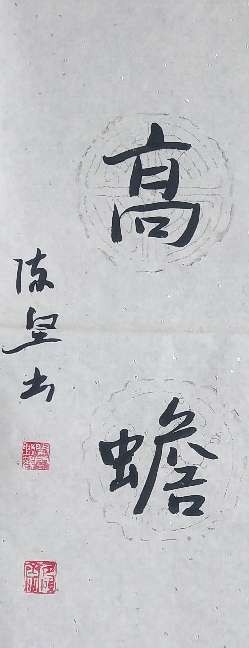 高蟾
陈坚书